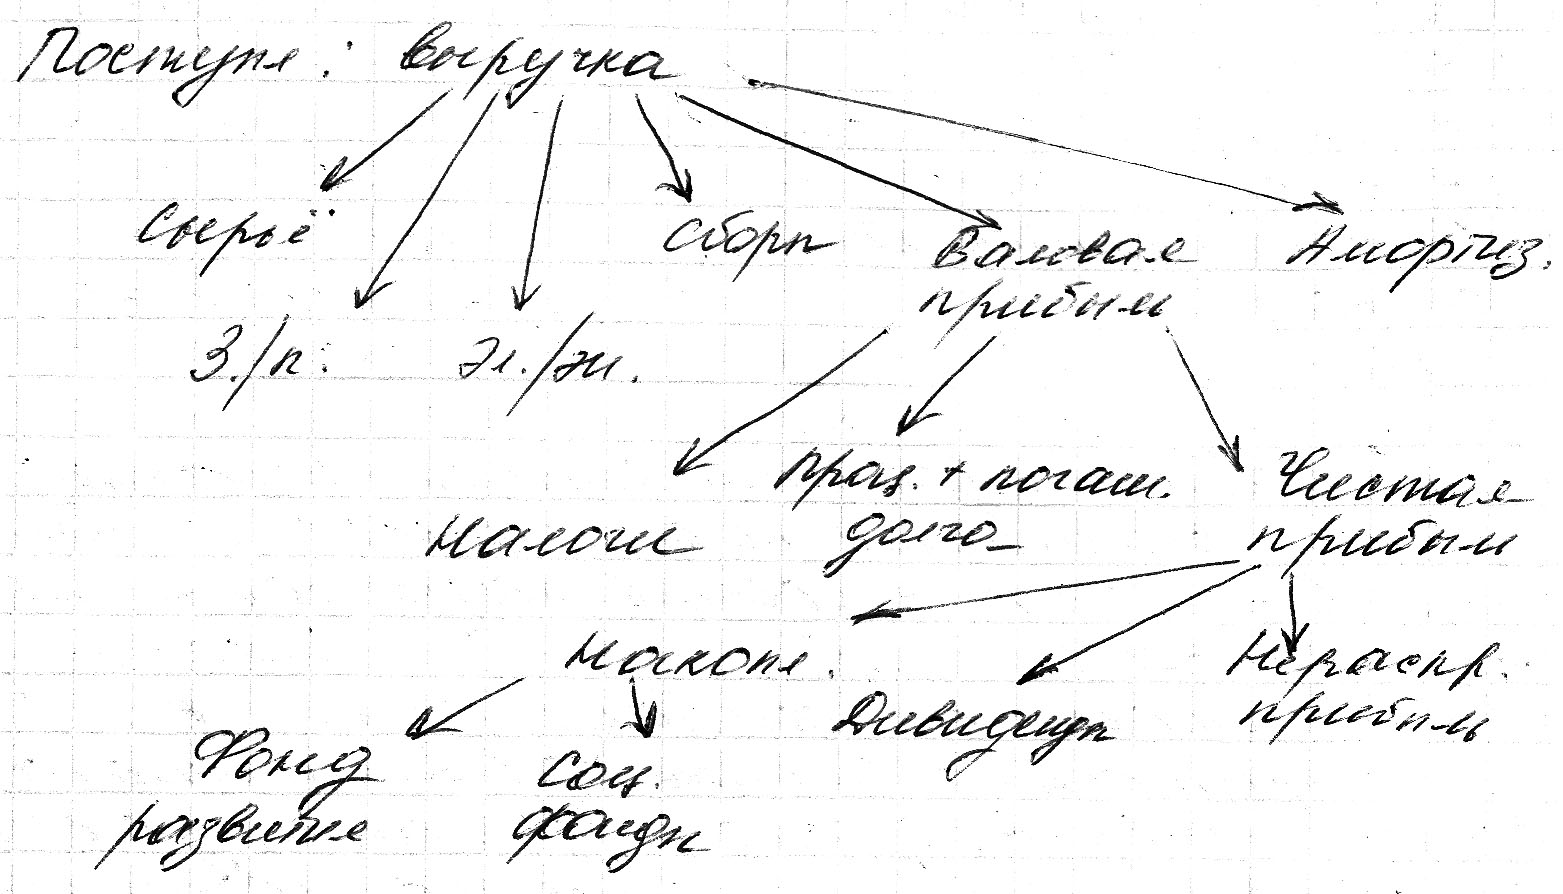 Поступл: выручка
Сырьё
Сборы
Валовая
прибыль
Амортиз.
З./п.
Эл./эн.
проц. + погаш.
долго
Чистая
прибыль
Налоги
Накопл.
Нераспр.
прибыль
Дивиденды
Фонд
развития
Соц.
фонды